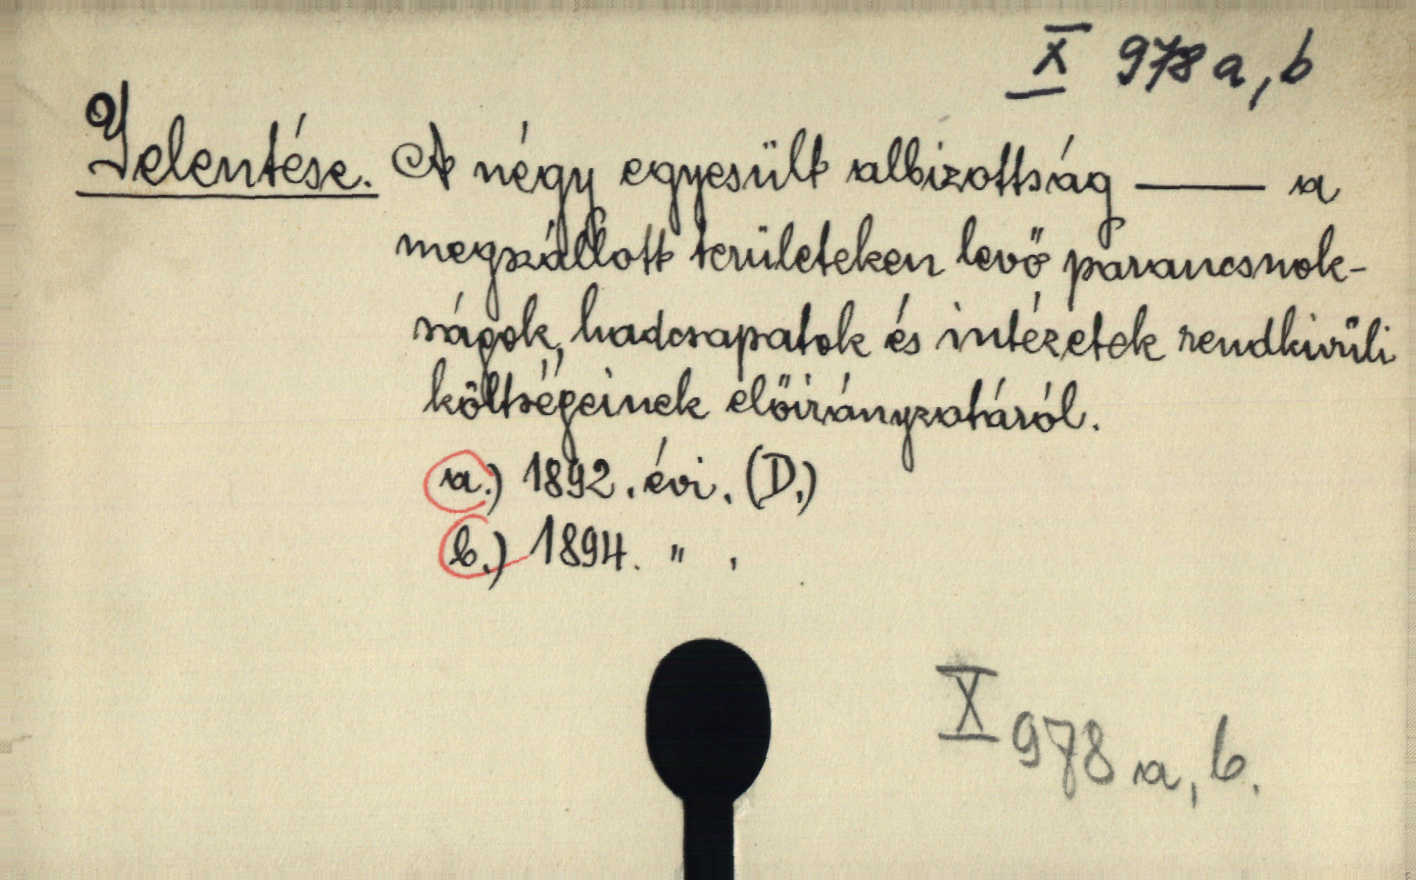 X 978 a, b
Jelentése. A négy egyesült albizottság —— a
megszállott területeken levő parancsnok-
ságok, hadcsapatok és intézetek rendkivűli
költségeinek előirányzatáról.
a.) 1892. évi. (D.)
b.) 1894. " .
X 978 a, b.